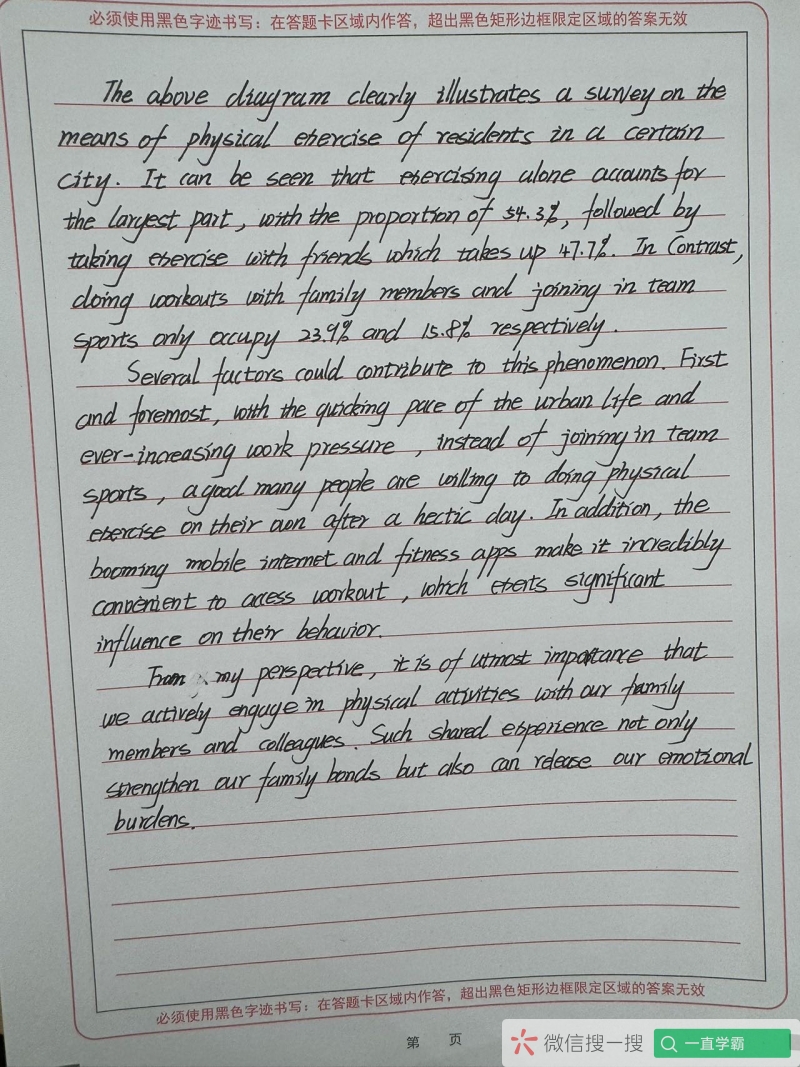 必须使用黑色字迹书写：在答题卡区域内作答，超出黑色矩形边框限定区域的答案无效
The above diagram clearly illustrates a survey on the
means of physical exercise of residents in a certain
city. It can be seen that exercising alone accounts for
the largest part, with the proportion of 54.3%, followed by
taking exercise with friends which takes up 47.7%. In Contrast,
doing workouts with family members and joining in team
sports only occupy 23.9% and 15.8% respectively.
Several factors could contribute to this phenomenon. First
and foremost, with the quicking pace of the urban life and
ever-increasing work pressure, instead of joining in team
sports, a good many people are willing to doing physical
exercise on their own after a hectic day. In addition, the
booming mobile internet and fitness apps make it incredibly
convenient to access workout, which exerts significant
influence on their behavior.
From my perspective, it is of utmost importance that
we actively engage in physical activities with our family
members and colleagues. Such shared experience not only
strengthen our family bonds but also can release our emotional
burdens.
必须使用黑色字迹书写：在答题卡区域内作答，超出黑色矩形边框限定区域的答案无效
第 页
微信搜一搜 一直学霸